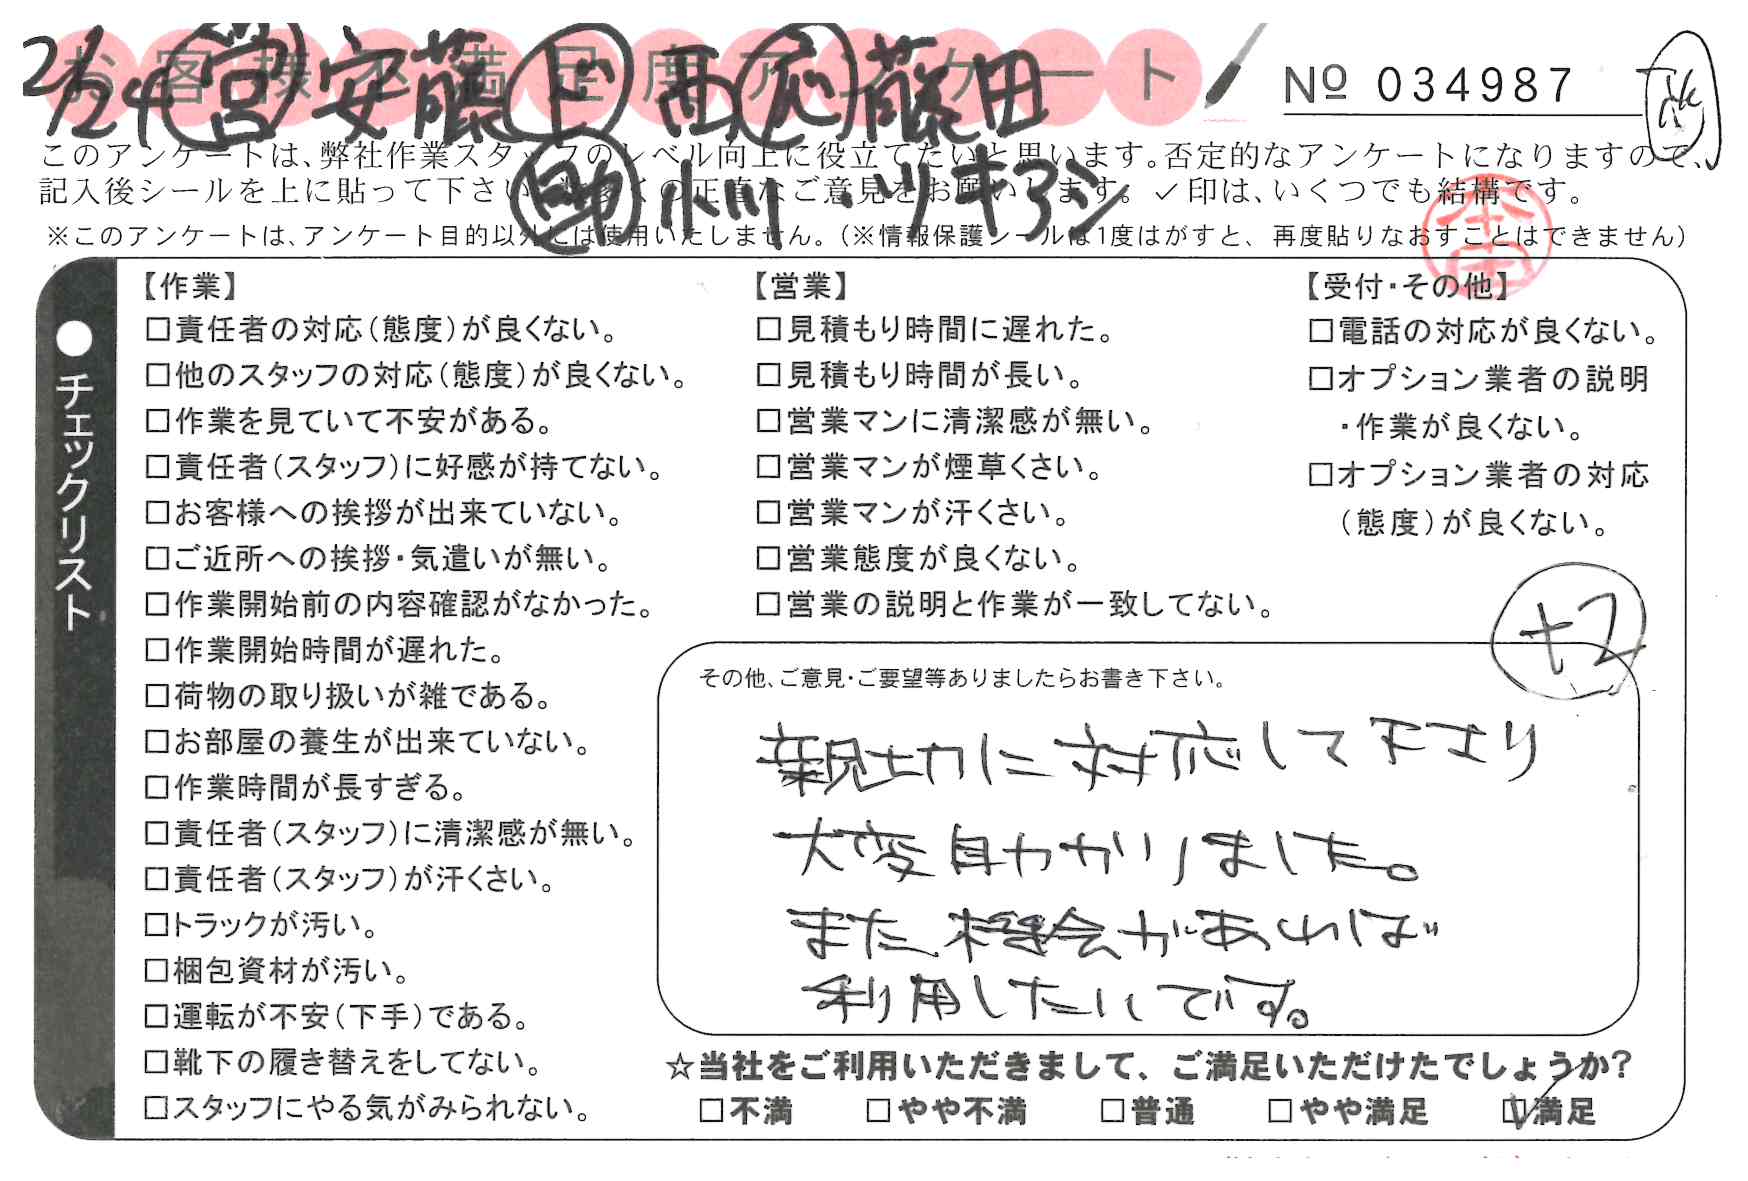 お客様不満足度アンケート
№ 034987
2/24 営 安藤 ド 西 応 藤田
助 小川・ツキアシ
このアンケートは、弊社作業スタッフのレベル向上に役立てたいと思います。否定的なアンケートになりますので、
記入後シールを上に貼って下さい。数多くの正直なご意見をお願いします。✓印は、いくつでも結構です。
※このアンケートは、アンケート目的以外には使用いたしません。(※情報保護シールは1度はがすと、再度貼りなおすことはできません)
●チェックリスト
【作業】
□責任者の対応(態度)が良くない。
□他のスタッフの対応(態度)が良くない。
□作業を見ていて不安がある。
□責任者(スタッフ)に好感が持てない。
□お客様への挨拶が出来ていない。
□ご近所への挨拶・気遣いが無い。
□作業開始前の内容確認がなかった。
□作業開始時間が遅れた。
□荷物の取り扱いが雑である。
□お部屋の養生が出来ていない。
□作業時間が長すぎる。
□責任者(スタッフ)に清潔感が無い。
□責任者(スタッフ)が汗くさい。
□トラックが汚い。
□梱包資材が汚い。
□運転が不安(下手)である。
□靴下の履き替えをしてない。
□スタッフにやる気がみられない。
【営業】
□見積もり時間に遅れた。
□見積もり時間が長い。
□営業マンに清潔感が無い。
□営業マンが煙草くさい。
□営業マンが汗くさい。
□営業態度が良くない。
□営業の説明と作業が一致してない。
【受付・その他】
□電話の対応が良くない。
□オプション業者の説明
・作業が良くない。
□オプション業者の対応
(態度)が良くない。
+2
その他、ご意見・ご要望等ありましたらお書き下さい。
親切に対応して下さり
大変助かりました。
また機会があれば
利用したいです。
☆当社をご利用いただきまして、ご満足いただけたでしょうか?
□不満 □やや不満 □普通 □やや満足 ☑満足